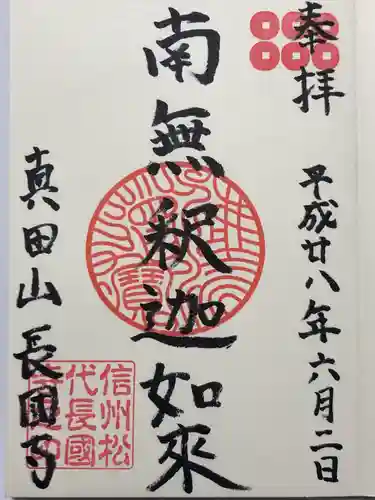 奉拝
平成廿八年六月二日
南無釈迦如来
真田山長國寺
信州松
代長國